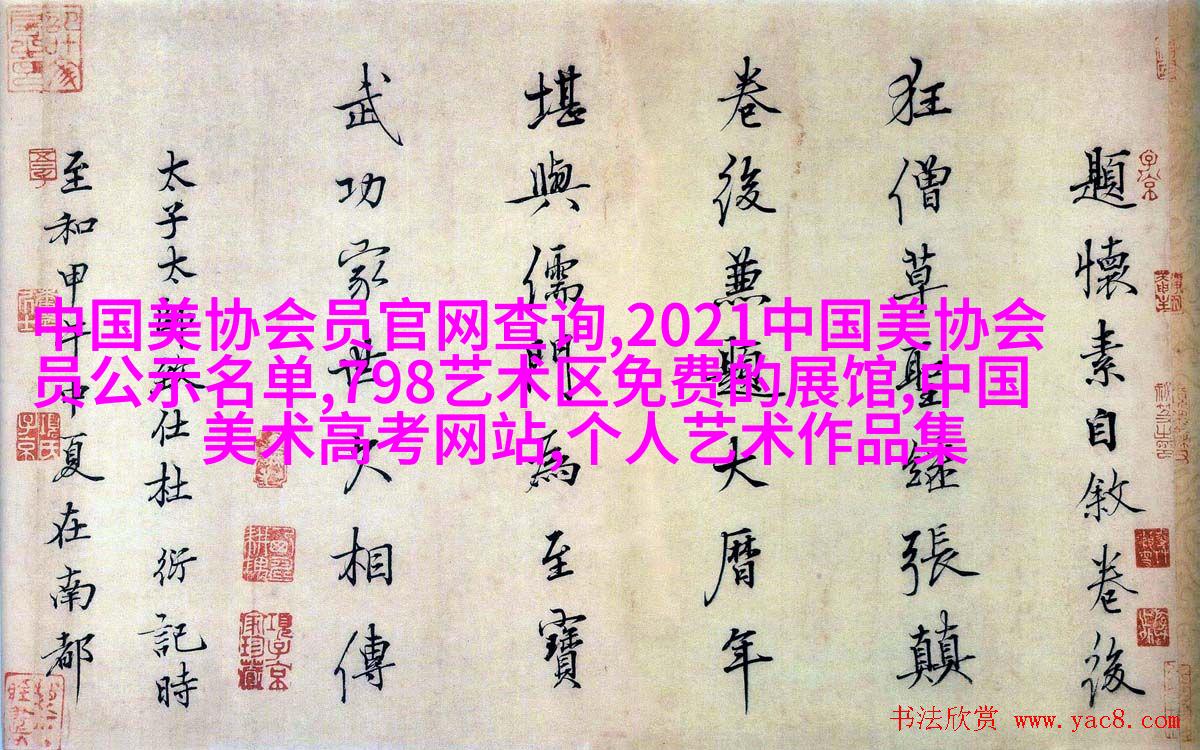 中国美协会员官网查询,2021中国美协会
员公示名单,798艺术区免费的展馆,中国
美术高考网站,个人艺术作品集
題懷素自敘卷後
狂僧草聖繼張顛
卷後兼題大曆年
堪與儒門為至寶
武功家世久相傳
太子太師致仕杜衍記時
至和甲午中夏在南都
項子京
家珍藏
书法欣赏 www.yac8.com